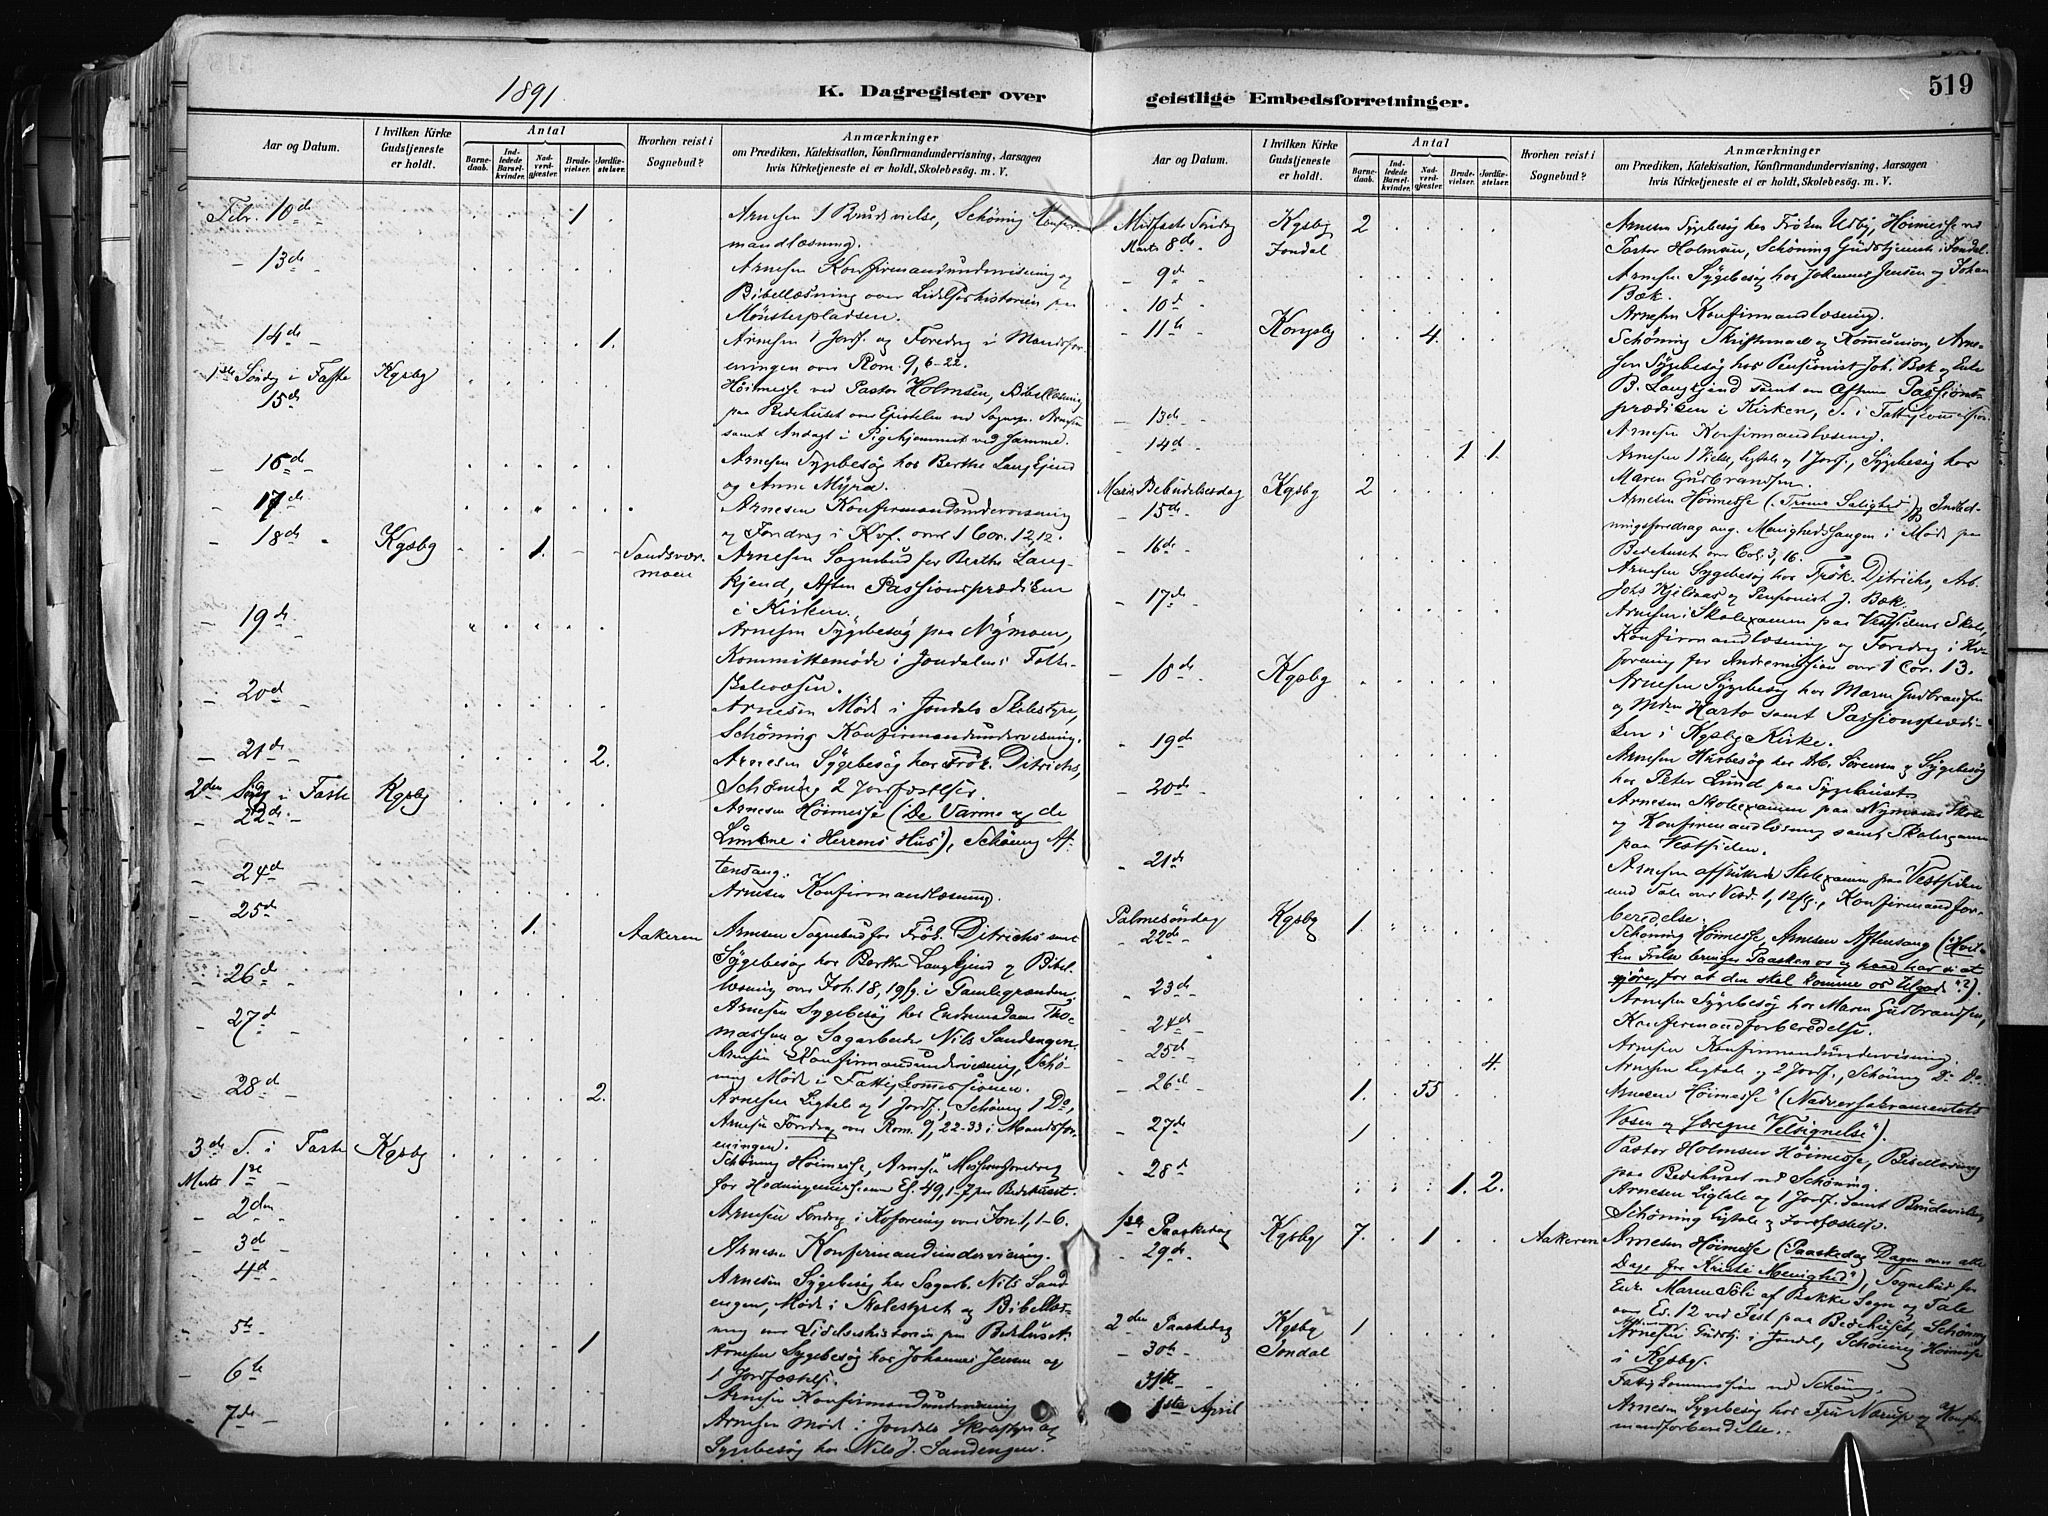 519
1891.
K. Dagregister over geistlige Embedsforretninger.
Aar og Datum.
I hvilken Kirke Gudstjeneste er holdt.
Antal
Barnedaab.
Indledede Barselkvinder.
Nadverdgjester.
Brudevielser.
Jordfæstelser.
Hvorhen reist i Sognebud?
Anmærkninger
om Prædiken, Katekisation, Konfirmandundervisning, Aarsagen
hvis Kirketjeneste ei er holdt, Skolebesøg. m. V.
Febr. 10de 1 Arnesen 1 Brudevielse, Schöning Konfir-
mandlæsning.
13de Arnesen Konfirmandundervisning og
Bibellæsning over Lidelseshistorien paa
Mönsterpladsen.
14de 1. Arnesen 1 Jordf. og Foredrag i Mandsfor-
eningen over Rom. 9, 6-22.
1ste Söndag i Faste Kgsbg Höimesse ved Pastor Holmsen, Bibellæsning
15de paa Bedehuset over Epistelen ved Sognepr. Arnesen
samt Andagt i Pigehjemmet ved samme.
16de Arnesen Sygebesög hos Berthe Langkjend
og Anne Myra.
17de Arnesen Konfirmandundervisning
og Foredrag i Kvf. over 1 Cor. 12, 12.
18de Kgsbg 1. Sandsvær- Arnesen Sognebud for Berthe Lang-
moen kjend, Aften Passionsprædiken
i Kirken.
19de Arnesen Sygebesög paa Nymoen,
Kommittemöde i Jondalens Folke-
skolevæsen.
20de Arnesen Möde i Jondals Skolestyre,
Schöning Konfirmandundervisning.
21de 2. Arnesen Sygebesög hos Frök. Ditrichs,
Schöning 2 Jordfæstelser.
2den Söndag i Faste Kgsbg Arnesen Höimesse (De Varme og de
22de Lunkne i Herrens Hus"), Schöning Af-
tensang.
24de Arnesen Konfirmandlæsning.
25de 1. Aakeren Arnesen Sognebud for Frök. Ditrichs samt
Sygebesög hos Berthe Langkjend og Bibel-
26de læsning over Joh. 18, 19 flg. i Gamlegrænden.
Arnesen Sygebesög hos Enkemadam Tho-
27de massen og Sagarbeider Nils Sandengen.
Arnesen Konfirmandundervisning, Schö-
ning Möde i Fattigkommissionen.
28de 2. Arnesen Ligtale og 1 Jordf., Schöning 1 Do,
Arnesen Foredrag over Rom. 9, 22-33 i Mandsfor-
eningen.
3die S. i Faste Kgsbg Schöning Höimesse, Arnesen Missionsforedrag
Marts 1ste for Hedningemissionen Es. 49, 1-7 paa Bedehuset.
2den Arnesen Foredrag i Kvforening over Jon. 1, 1-6.
3de Arnesen Konfirmandundervisning.
4de Arnesen Sygebesög hos Sagarb. Nils Sand-
engen, Möde i Skolestyret og Bibellæs-
5te 1 ning over Lidelseshistorien paa Bedehuset.
Arnesen Sygebesög hos Johannes Jensen og
6te 1 Jordfæstelse.
Arnesen Konfirmandundervisning
7de Arnesen möde i Jondals Skolestyre og
Sygebesög hos Nils J. Sandengen.
Aar og Datum.
I hvilken Kirke Gudstjeneste er holdt.
Antal
Barnedaab.
Indledede Barselkvinder.
Nadverdgjester.
Brudevielser.
Jordfæstelser.
Hvorhen reist i Sognebud?
Anmærkninger
om Prædiken, Katekisation, Konfirmandundervisning, Aarsagen
hvis Kirketjeneste ei er holdt, Skolebesøg. m. V.
Midfaste Söndag Kgsbg 2 Arnesen Sygebesög hos Fröken Usby, Höimesse ved
Marts 8de Jondal Pastor Holmsen, Schöning Gudstjeneste i Jondal.
9de Arnesen Sygebesög hos Johannes Jensen og Johan
Bæk.
10de Arnesen Konfirmandlæsning.
11te Kongsbg 4. Schöning Skriftemaal og Kommunion, Arne-
sen Sygebesög hos Pensionist Joh. Bæk og Enke
B. Langkjend samt om Aftenen Passions-
prædiken i Kirken, S. i Fattigkommission.
13de Arnesen Konfirmandlæsning.
14de 1. 1. Arnesen 1 Vielse, Ligtale og 1 Jordf., Sygebesög hos
Maren Gudbrandsen.
Mariæ Bebudelsesdag Kgsbg 2 Arnesen Höimesse (Troens Salighed) og Indled-
15de ningsforedrag ang. Menighedssangen i Möde paa
Bedehuset over Col. 3, 16.
16de Arnesen Sygebesög hos Frök. Ditrichs, Arb.
Johs Kjelnæs og Pensionist J. Bæk.
17de Arnesen i Skolexamen paa Vestsidens Skole,
Konfirmandlæsning og Foredrag i Kv-
forening for Indremission over 1 Cor. 13.
18de Kgsbg Arnesen Sygebesög hos Maren Gudbrandsen
og Mdm Harto samt Passionsprædi-
ken i Kgsbg Kirke.
19de Arnesen Husbesög hos Arb. Sörensen og Sygebesög
hos Peter Lund paa Sygehuset.
20de Arnesen Skolexamen paa Nymoens Skole
og Konfirmandlæsning samt Skolexamen
paa Vestsiden.
21de Arnesen afsluttede Skolexamen paa Vestsiden
med Tale over 1, 12 flg., Konfirmandfor-
beredelse.
Palmesöndag Kgsbg 1. Schöning Höimesse, Arnesen Aftensang ("Hvil-
22de ken Frelse bringer Paasken os og hvad har vi at
gjöre, for at den skal komme os tilgode"?).
23de Arnesen Sygebesög hos Maren Gudbrandsen,
24de Konfirmandforberedelse.
25de Arnesen Konfirmandundervisning.
4. Arnesen Ligtale og 2 Jordf., Schöning Do Do
26de 1. 55 Arnesen Höimesse ("Nadversakramentets
Væsen og særegne Velsignelse").
27de 1 Pastor Holmsen Höimesse, Bibellæsning
paa Bedehuset ved Schöning.
28de 1. 2. Arnesen Ligtale og 1 Jordf. samt Brudevielse,
Schöning Ligtale og Jordfæstelse.
1ste Paaskedag Kgsbg 7. 1 Aakeren Arnesen Höimesse (Paaskedag Dagen over alle
29de Dage for Kristi Menighed"), Sognebud for
Enke Maren Soli af Bakke Sogn og Tale
over Es. 12 ved Fest paa Bedehuset, Schöning
Aftensang.
2den Paaskedag Kgsbg 1 Arnesen Gudstj. i Jondal, Schöning Höimesse
30te Jondal i Kgsbg.
31te Fattigkommission ved Schöning.
1ste April Arnesen Sygebesög hos Fru Nærup og Konfir-
mandforberedelse.